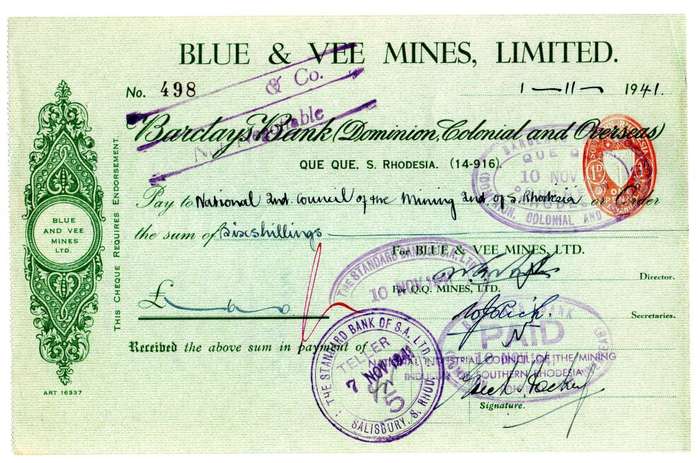 BLUE & VEE MINES, LIMITED.
& Co.
No. 498
1-11- 1941.
Barclays Bank (Dominion, Colonial and Overseas)
QUE QUE, S. RHODESIA. (14-916).
QUE QUE
10 NOV
COLONIAL AND
Pay to National Ind. Council of the Mining Ind. of S. Rhodesia or Order
the sum of Sixshillings
For BLUE & VEE MINES, LTD.
Director.
THE STANDARD BANK OF S.A. LTD.
10 NOV 1941
Q.Q. MINES, LTD.
Secretaries.
£
PAID
Received the above sum in payment of
NATIONAL INDUSTRIAL COUNCIL OF THE MINING
INDUSTRY OF SOUTHERN RHODESIA
Signature.
THE STANDARD BANK OF S.A. LTD.
TELLER
7 NOV 1941
SALISBURY, S. RHOD.
BLUE
AND VEE
MINES
LTD.
THIS CHEQUE REQUIRES ENDORSEMENT.
ART 16337